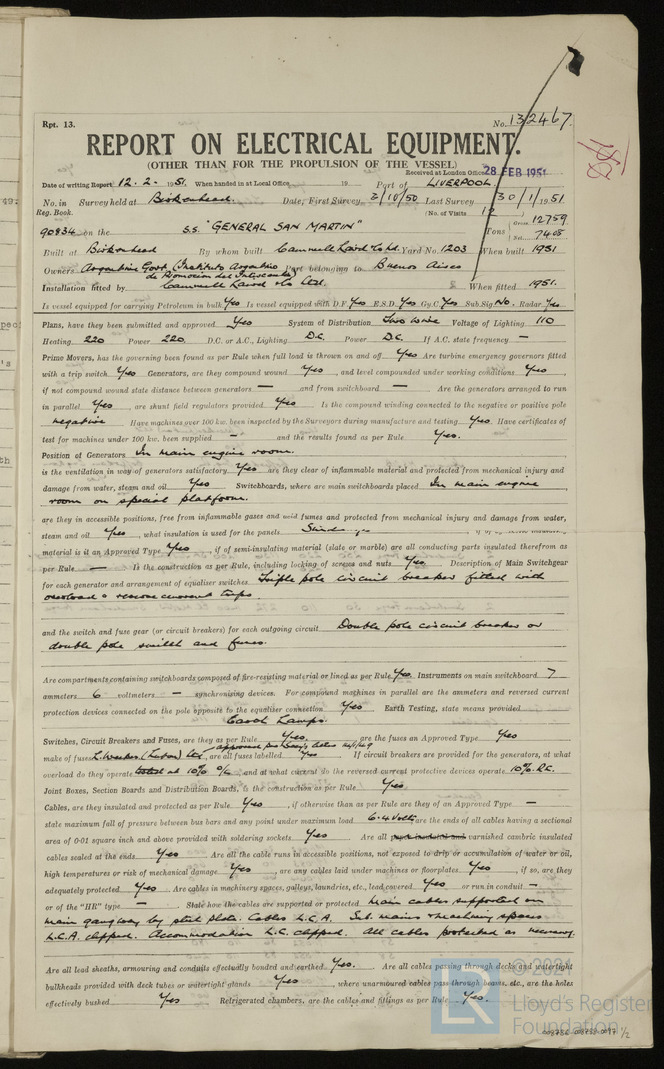 Rpt. 13.
No. 132467.
REPORT ON ELECTRICAL EQUIPMENT.
(OTHER THAN FOR THE PROPULSION OF THE VESSEL)
Received at London Office 28 FEB 1951
Date of writing Report 12. 2. 1951. When handed in at Local Office 19 Port of LIVERPOOL
No. in Survey held at Birkenhead. Date, First Survey 3/10/50 Last Survey 30/1/1951
Reg. Book. (No. of Visits 12
90834 on the S.S. "GENERAL SAN MARTIN" Tons Gross 12759 Net 7408
Built at Birkenhead By whom built Cammell Laird & Co Ltd. Yard No. 1203 When built 1951
Owners Argentine Govt (Instituto Argentino de Promocion del Intercambio) Port belonging to Buenos Aires
Installation fitted by Cammell Laird & Co Ltd. When fitted 1951.
Is vessel equipped for carrying Petroleum in bulk Yes Is vessel equipped with D.F. Yes E.S.D. Yes Gy.C. Yes Sub.Sig. No. Radar Yes
Plans, have they been submitted and approved Yes System of Distribution Two wire Voltage of Lighting 110
Heating 220 Power 220. D.C. or A.C., Lighting D.C. Power D.C. If A.C. state frequency —
Prime Movers, has the governing been found as per Rule when full load is thrown on and off Yes Are turbine emergency governors fitted
with a trip switch Yes Generators, are they compound wound Yes, and level compounded under working conditions Yes,
if not compound wound state distance between generators — and from switchboard — Are the generators arranged to run
in parallel Yes, are shunt field regulators provided Yes Is the compound winding connected to the negative or positive pole
negative Have machines over 100 kw. been inspected by the Surveyors during manufacture and testing Yes Have certificates of
test for machines under 100 kw. been supplied — and the results found as per Rule Yes.
Position of Generators In main engine room.
is the ventilation in way of generators satisfactory Yes are they clear of inflammable material and protected from mechanical injury and
damage from water, steam and oil Yes Switchboards, where are main switchboards placed In main engine
room on special platform.
are they in accessible positions, free from inflammable gases and acid fumes and protected from mechanical injury and damage from water,
steam and oil Yes, what insulation is used for the panels
material is an Approved Type Yes, if of semi-insulating material (slate or marble) are all conducting parts insulated therefrom as
per Rule — Is the construction as per Rule, including locking of screws and nuts Yes Description of Main Switchgear
for each generator and arrangement of equaliser switches Triple pole circuit breaker fitted with
overload & reverse current trips.
and the switch and fuse gear (or circuit breakers) for each outgoing circuit Double pole circuit breaker or
double pole switch and fuses.
Are compartments containing switchboards composed of fire-resisting material or lined as per Rule Yes. Instruments on main switchboard 7
ammeters 6 voltmeters — synchronising devices. For compound machines in parallel are the ammeters and reversed current
protection devices connected on the pole opposite to the equaliser connection Yes Earth Testing, state means provided
Earth Lamps.
Switches, Circuit Breakers and Fuses, are they as per Rule Yes., are the fuses an Approved Type Yes
make of fuses are all fuses labelled Yes If circuit breakers are provided for the generators, at what
overload do they operate 10% o/L, and at what current do the reversed current protective devices operate 10% R.C.
Joint Boxes, Section Boards and Distribution Boards, is the construction as per Rule Yes
Cables, are they insulated and protected as per Rule Yes, if otherwise than as per Rule are they of an Approved Type —
state maximum fall of pressure between bus bars and any point under maximum load 6.4 volts are the ends of all cables having a sectional
area of 0·01 square inch and above provided with soldering sockets Yes Are all paper insulated and varnished cambric insulated
cables sealed at the ends Yes Are all the cable runs in accessible positions, not exposed to drip or accumulation of water or oil,
high temperatures or risk of mechanical damage Yes, are any cables laid under machines or floorplates Yes, if so, are they
adequately protected Yes Are cables in machinery spaces, galleys, laundries, etc., lead covered Yes or run in conduit —
or of the "HR" type — State how the cables are supported or protected Main cables supported on
main gangway by steel plate. Cables L.C.A. Sub. mains & machinery spaces
L.C.A. clipped. Accommodation L.C. clipped. All cables protected as necessary.
Are all lead sheaths, armouring and conduits effectually bonded and earthed Yes. Are all cables passing through decks and watertight
bulkheads provided with deck tubes or watertight glands Yes, where unarmoured cables pass through beams, etc., are the holes
effectively bushed Yes Refrigerated chambers, are the cables and fittings as per Rule Yes.
© 2021
Lloyd's Register
Foundation
LR
008732-008739-0097 1/2